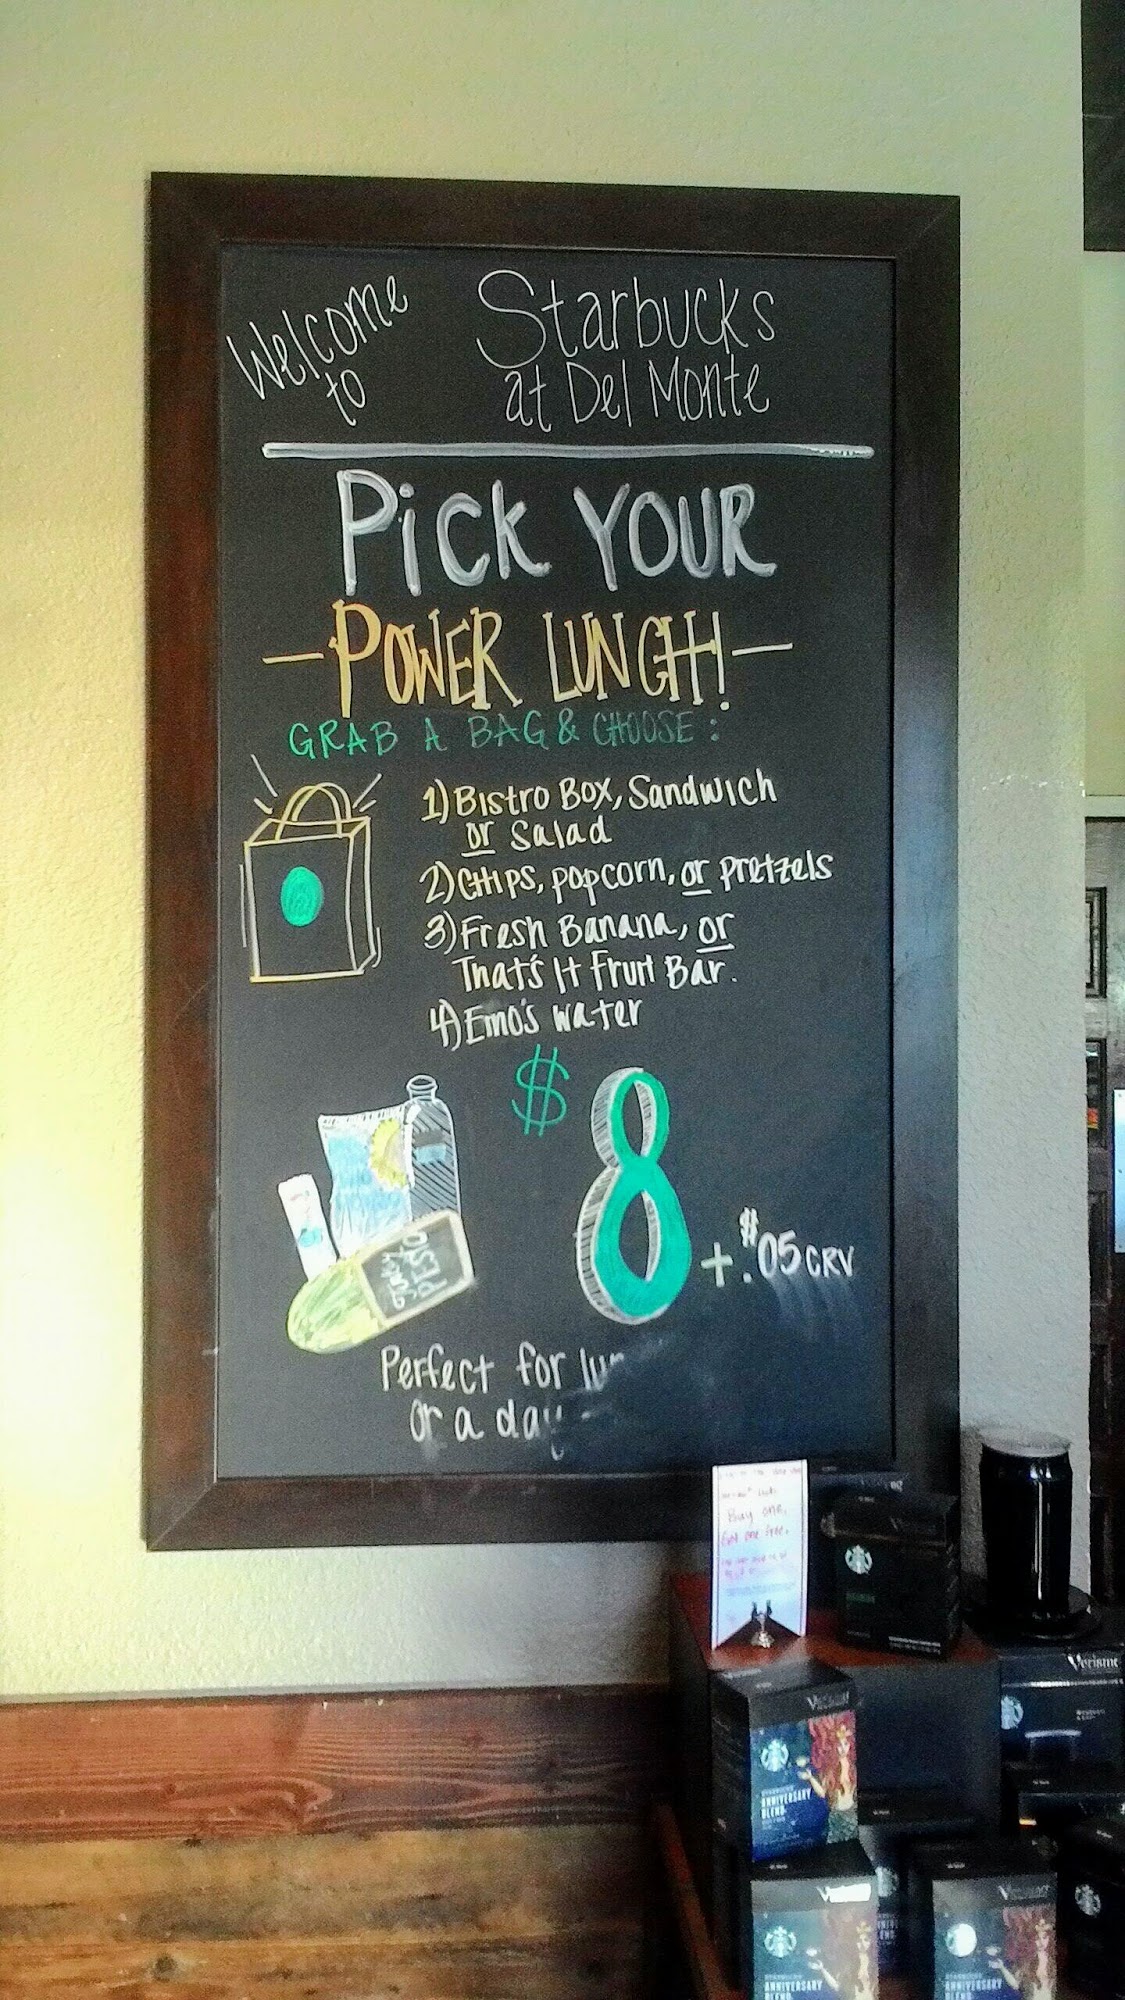 Welcome to
Starbucks
at Del Monte
Pick YOUR
POWER LUNCH!
GRAB A BAG & CHOOSE:
1) Bistro Box, Sandwich
or Salad
2) CHIPS, popcorn, or pretzels
3) Fresh Banana, or
That's It Fruit Bar.
4) Emo's water
$8 + $.05 CRV
Perfect for
or a day
Buy one,
Get one free.
Verismo
Verismo
ANNIVERSARY
BLEND
Verismo
ANNIVERSARY
ANNIVERSARY